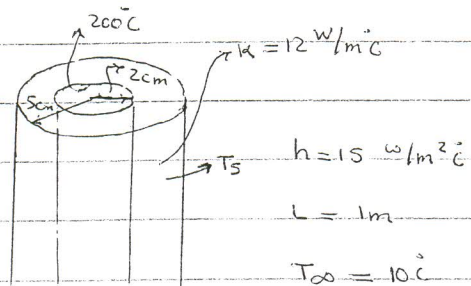 200°C
K = 12 W/m°C
2cm
5cm
Ts
h = 15 w/m²°C
L = 1m
T∞ = 10°C